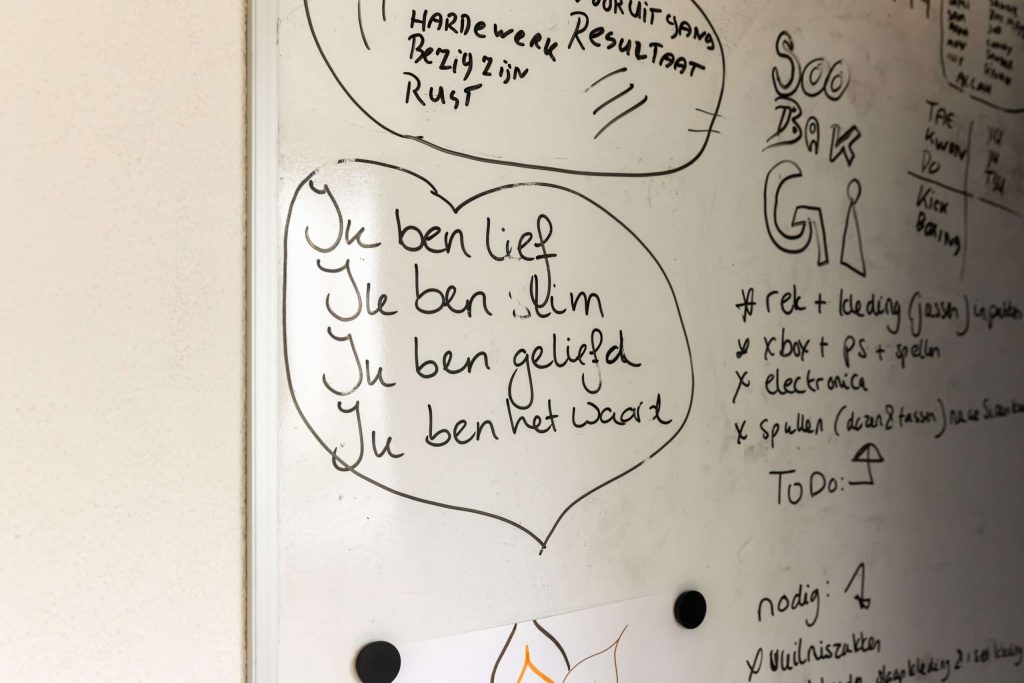 HARDEWERK
BEZIG ZIJN
RUST
VOORUITGANG
RESULTAAT
Ik ben lief
Ik ben slim
Ik ben geliefd
Ik ben het waard
SOO
BAK
Gi
ALLAH
TAE
KWON
DO
KICK
BOXING
rek + kleding (jassen) inpakken
x xbox + ps + spellen
x electronica
x spullen (dozen & tassen)
ToDo:
nodig:
x vuilniszakken